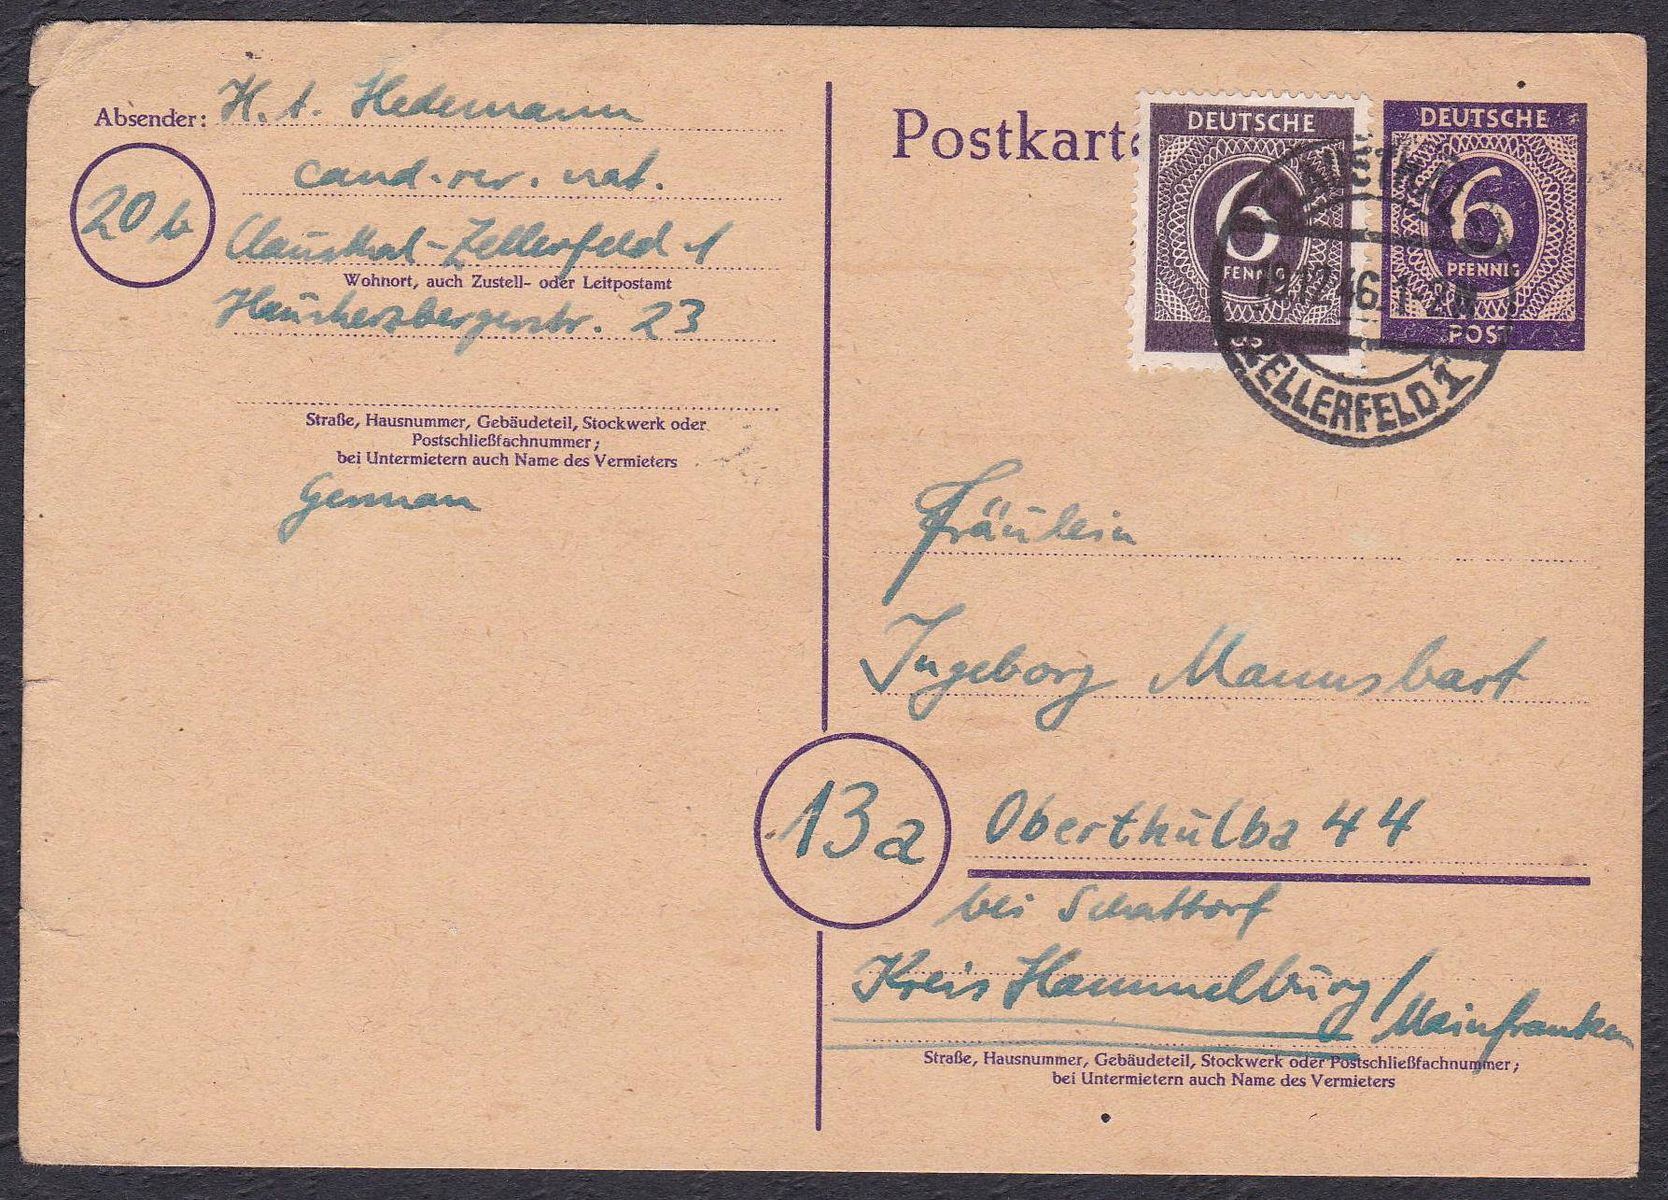 Absender: H. A. Hedemann
cand. rer. nat.
20 b
Clausthal-Zellerfeld 1
Wohnort, auch Zustell- oder Leitpostamt
Häuherzbergerstr. 23
Straße, Hausnummer, Gebäudeteil, Stockwerk oder
Postschließfachnummer;
bei Untermietern auch Name des Vermieters
German
Postkarte
DEUTSCHE
6
PFENNIG
POST
DEUTSCHE
6
PFENNIG
POST
CLAUSTHAL
19.12.46.
ZELLERFELD 1
Fräulein
Ingeborg Mannsbart
13a
Oberthulba 44
bei
Kreis Hammelburg / Mainfranken
Straße, Hausnummer, Gebäudeteil, Stockwerk oder Postschließfachnummer;
bei Untermietern auch Name des Vermieters